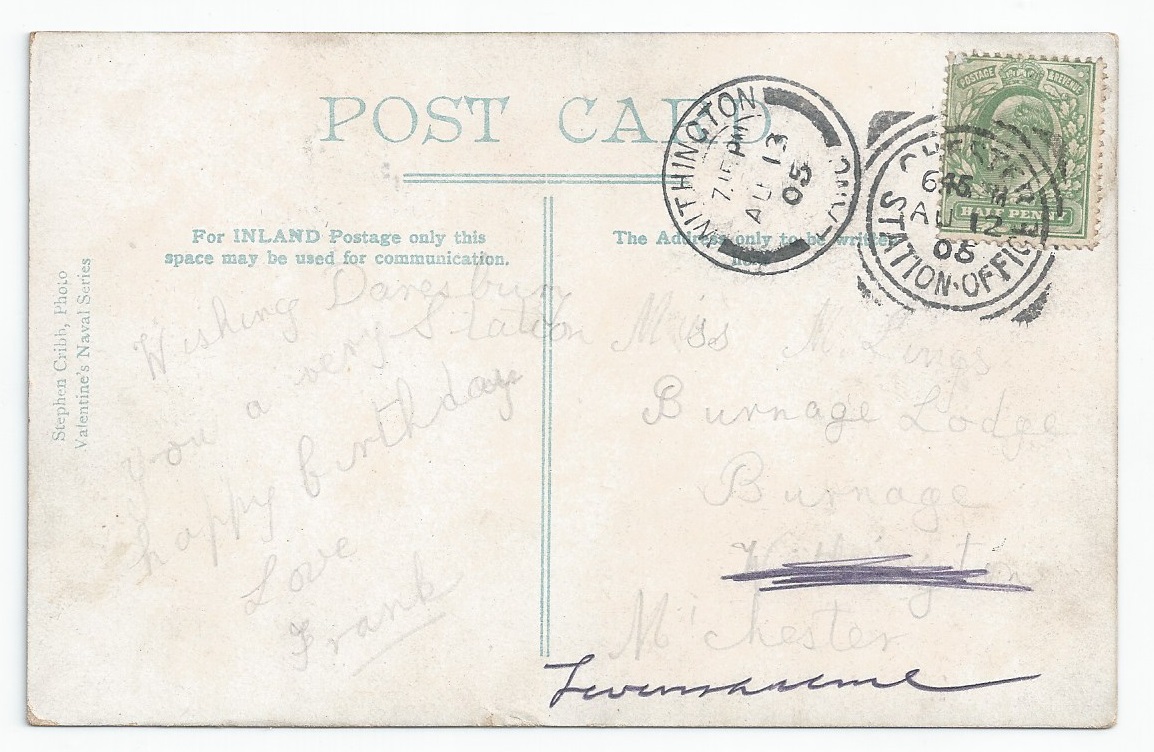 POST CARD
For INLAND Postage only this
space may be used for communication.
The Address only to be written
here
Stephen Cribb, Photo
Valentine's Naval Series
POSTAGE & REVENUE
HALF PENNY
WITHINGTON
7.15 PM
AU 13
05
CHESTER
645 PM
AU 12
05
STATION·OFFICE
Daresbury
Station
Wishing
you a very
happy birthday
Love
Frank
Miss M. Lings
Burnage Lodge
Burnage
Withington
M'chester
Levenshulme